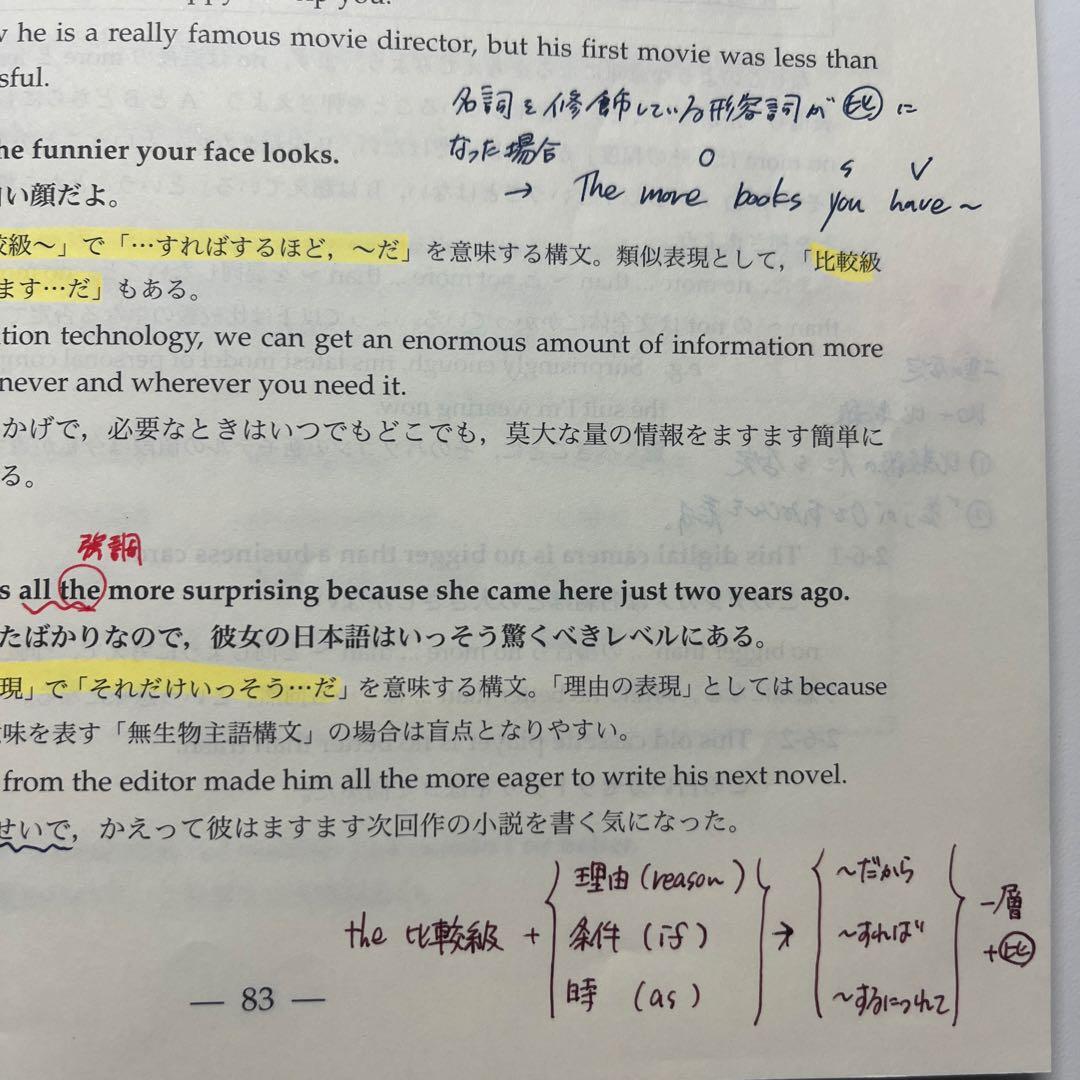 he is a really famous movie director, but his first movie was less than
sful.
名詞を修飾している形容詞が㊗比に
なった場合
O S V
→ The more books you have ~
he funnier your face looks.
い顔だよ。
較級〜」で「…すればするほど,〜だ」を意味する構文。類似表現として,「比較級
ます…だ」もある。
tion technology, we can get an enormous amount of information more
never and wherever you need it.
かげで,必要なときはいつでもどこでも,莫大な量の情報をますます簡単に
る。
強調
s all the more surprising because she came here just two years ago.
たばかりなので,彼女の日本語はいっそう驚くべきレベルにある。
現」で「それだけいっそう…だ」を意味する構文。「理由の表現」としては because
意味を表す「無生物主語構文」の場合は盲点となりやすい。
from the editor made him all the more eager to write his next novel.
せいで,かえって彼はますます次回作の小説を書く気になった。
理由 (reason) 〜だから
the 比較級 + 条件 (if) → 〜すれば 一層
+比
時 (as) 〜するにつれて
— 83 —